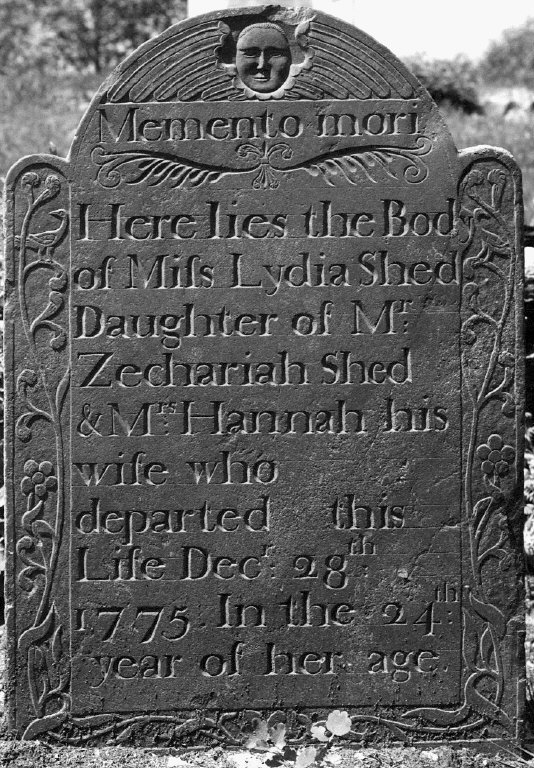 Memento mori
Here lies the Body
of Miſs Lydia Shed
Daughter of Mr.
Zechariah Shed
& Mrs. Hannah his
wife who
departed this
Life Decr. 28th.
1775. In the 24th.
year of her age.